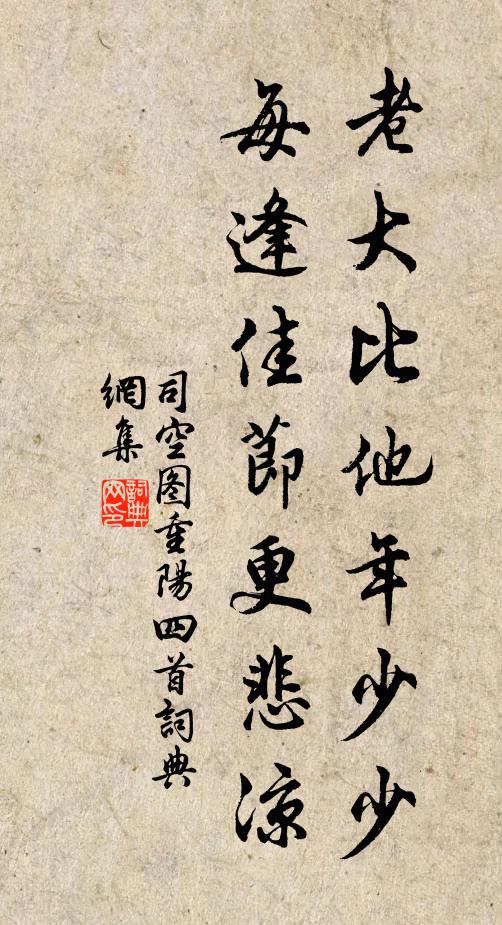 老大比他年少少
每逢佳節更悲涼
司空图重陽四首詞典
網集
詞典
网印